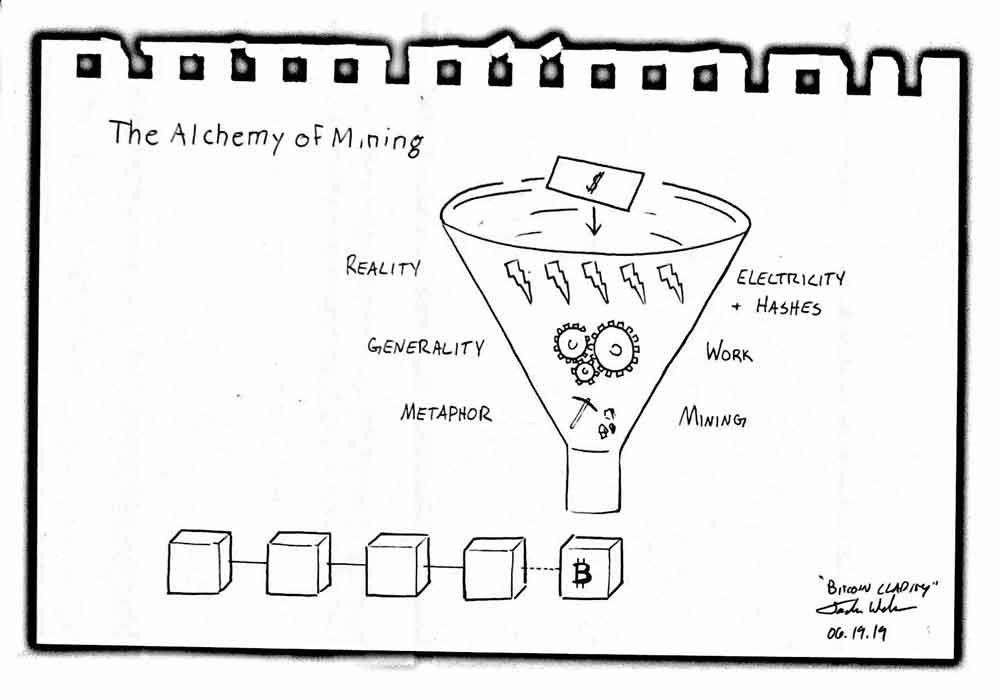 The Alchemy of Mining
$
REALITY
ELECTRICITY
+ HASHES
GENERALITY
WORK
METAPHOR
MINING
₿
"BITCOIN CLARITY"
06.19.19